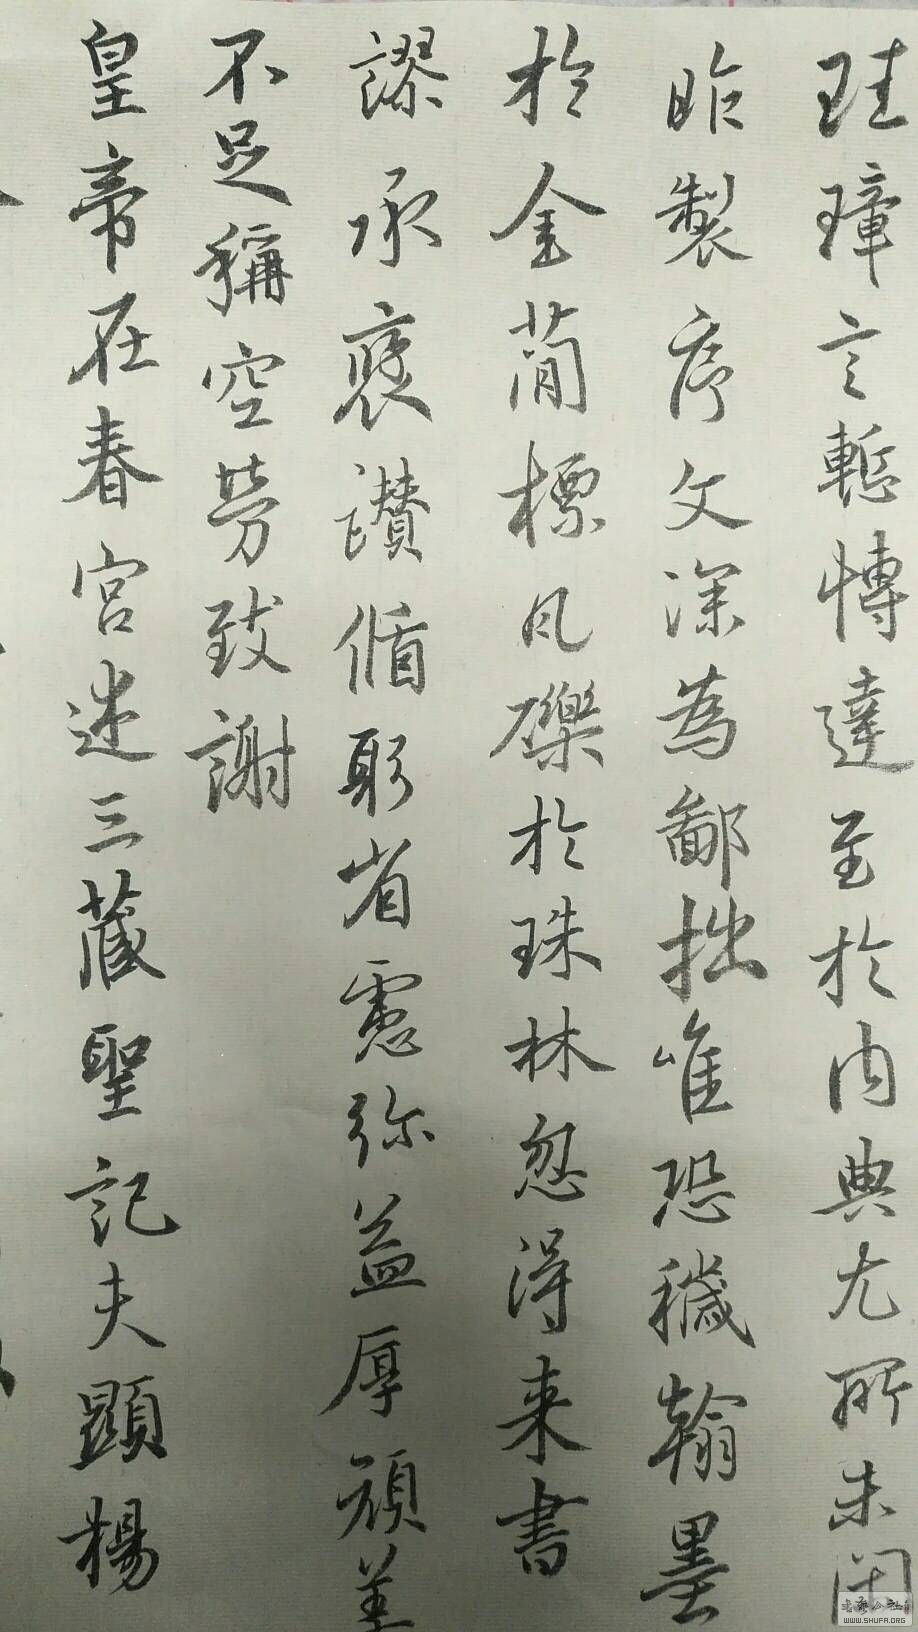 珪璋言慙博達至於内典尤所未閑
昨製序文深為鄙拙唯恐穢翰墨
於金簡標凡礫於珠林忽得来書
謬承褒讃循躬省慮弥益厚顔差
不足稱空勞致謝
皇帝在春宮述三藏聖記夫顯楊
WWW.SHUFA.ORG